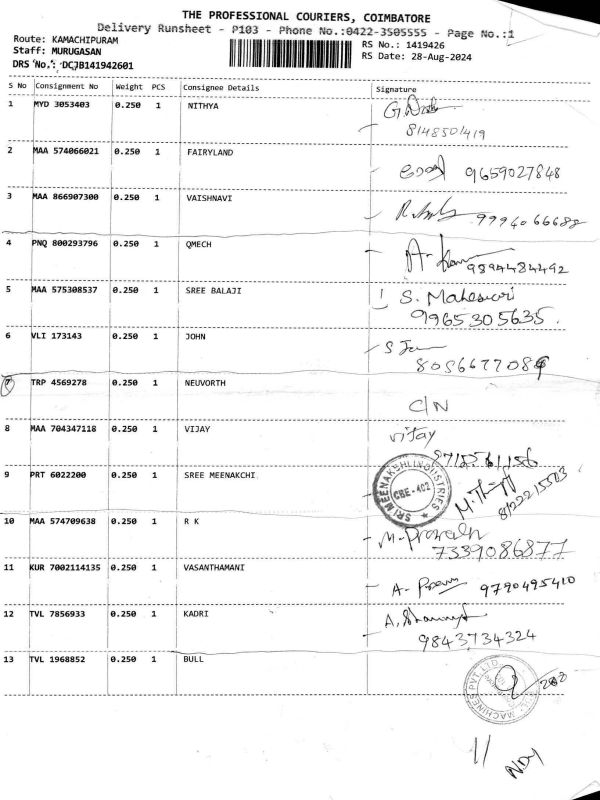 THE PROFESSIONAL COURIERS, COIMBATORE
Delivery Runsheet - P103 - Phone No.:0422-3505555 - Page No.:1
Route: KAMACHIPURAM
RS No.: 1419426
Staff: MURUGASAN
RS Date: 28-Aug-2024
DRS No.: DCJB141942601
S No Consignment No Weight PCS Consignee Details Signature
1 MYD 3053403 0.250 1 NITHYA
8148501419
2 MAA 574066021 0.250 1 FAIRYLAND
9659027848
3 MAA 866907300 0.250 1 VAISHNAVI
9994066688
4 PNQ 800293796 0.250 1 QMECH
9894484492
5 MAA 575308537 0.250 1 SREE BALAJI S. Maheswari
9965305635.
6 VLI 173143 0.250 1 JOHN
7 TRP 4569278 0.250 1 NEUVORTH
C/N
8 MAA 704347118 0.250 1 VIJAY vijay
9 PRT 6022200 0.250 1 SREE MEENAKCHI
SRI MEENAKSHI INDUSTRIES
CBE-402
10 MAA 574709638 0.250 1 R K
7339086877
11 KUR 7002114135 0.250 1 VASANTHAMANI
9790495410
12 TVL 7856933 0.250 1 KADRI
9843734324
13 TVL 1968852 0.250 1 BULL
MACHINES PVT. LTD.
11